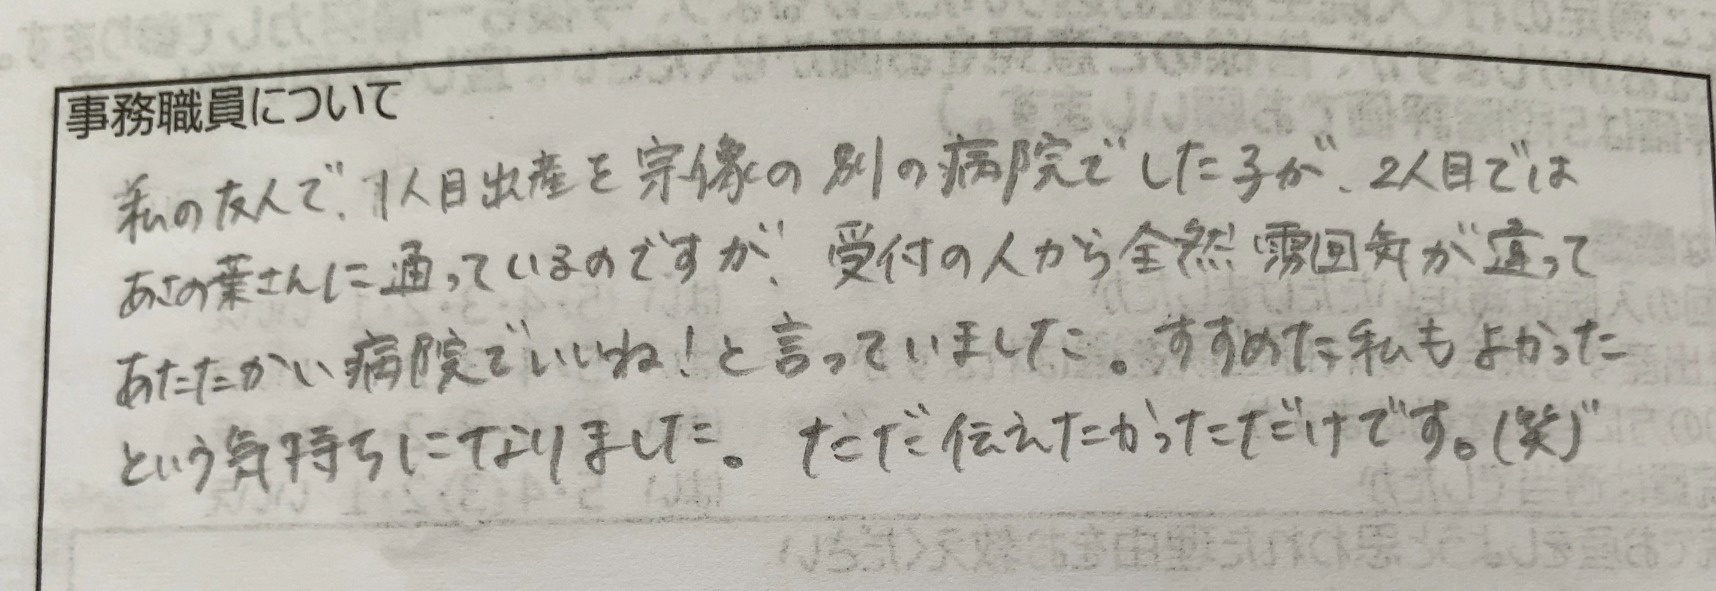 事務職員について
私の友人で、1人目出産を宗像の別の病院でした子が、2人目では
あさの葉さんに通っているのですが、受付の人から全然雰囲気が違って
あたたかい病院でいいね!と言っていました。すすめた私もよかった
という気持ちになりました。ただ伝えたかっただけです。(笑)